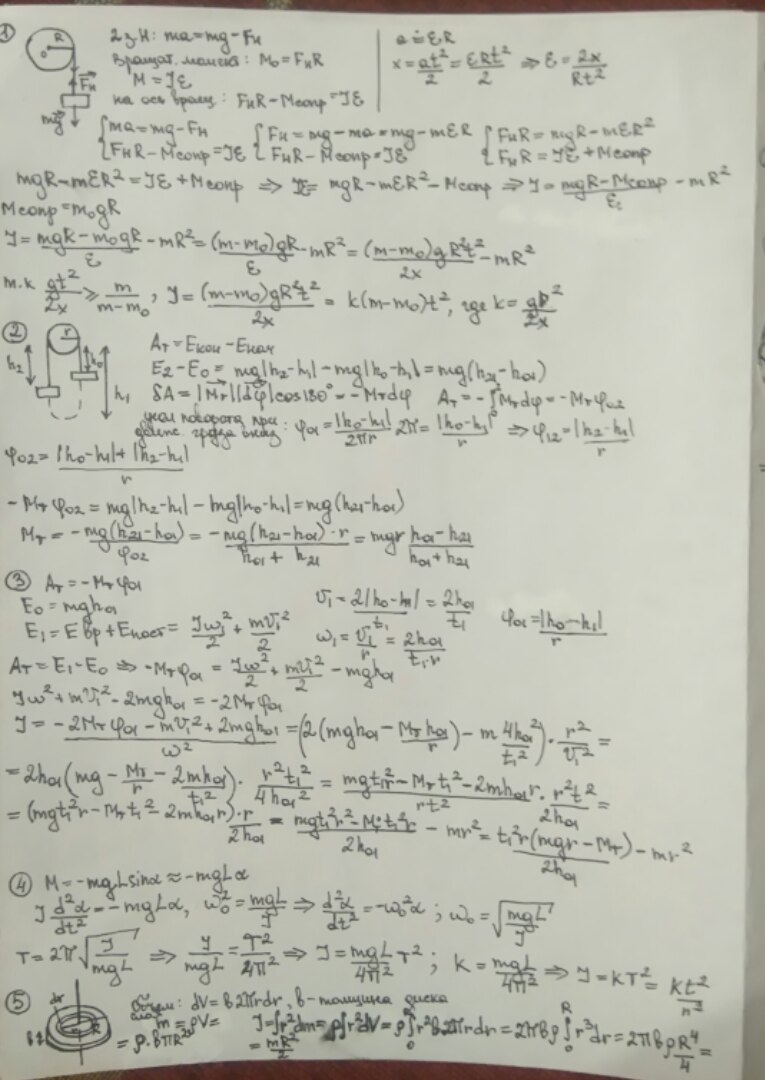 ①
R
0
Fн
mg
2 з.Н: ma = mg - Fн
Вращат. момент: M₀ = FнR
M = Jε
на ось вращ: FнR - Mсопр = Jε
a = εR
x = at²/2 = εRt²/2 ⇒ ε = 2x/Rt²
{ma = mg - Fн {Fн = mg - ma = mg - mεR {FнR = mgR - mεR²
{FнR - Mсопр = Jε {FнR - Mсопр = Jε {FнR = Jε + Mсопр
mgR - mεR² = Jε + Mсопр ⇒ Jε = mgR - mεR² - Mсопр ⇒ J = (mgR - Mсопр)/ε - mR²
Mсопр = m₀gR
J = (mgR - m₀gR)/ε - mR² = (m-m₀)gR/ε - mR² = (m-m₀)gR²t²/2x - mR²
т.к gt²/2x ≥ m/(m-m₀), J = (m-m₀)gR²t²/2x = k(m-m₀)t², где k = gR²/2x
②
r
h₂
h₀
h₁
Aт = Eкон - Eнач
E₂ - E₀ = mg|h₂-h₁| - mg|h₀-h₁| = mg(h₂₁-h₀₁)
δA = |Mт||dφ|cos180° = -Mтdφ Aт = -∫Mтdφ = -Mтφ₀₂
угол поворота при
движ. груза вниз: φ₀₁ = |h₀-h₁|/2πr 2π = |h₀-h₁|/r ⇒ φ₁₂ = |h₂-h₁|/r
φ₀₂ = (|h₀-h₁| + |h₂-h₁|)/r
-Mтφ₀₂ = mg|h₂-h₁| - mg|h₀-h₁| = mg(h₂₁-h₀₁)
Mт = -mg(h₂₁-h₀₁)/φ₀₂ = -mg(h₂₁-h₀₁)·r/(h₀₁+h₂₁) = mgr (h₀₁-h₂₁)/(h₀₁+h₂₁)
③ Aт = -Mтφ₀₁
E₀ = mgh₀₁
E₁ = Eвр + Eпост = Jω₁²/2 + mV₁²/2
V₁ = 2|h₀-h₁|/t₁ = 2h₀₁/t₁
ω₁ = V₁/r = 2h₀₁/t₁·r
φ₀₁ = |h₀-h₁|/r
Aт = E₁ - E₀ ⇒ -Mтφ₀₁ = Jω²/2 + mV₁²/2 - mgh₀₁
Jω² + mV₁² - 2mgh₀₁ = -2Mтφ₀₁
J = (-2Mтφ₀₁ - mV₁² + 2mgh₀₁)/ω² = (2(mgh₀₁ - Mтh₀₁/r) - m 4h₀₁²/t₁²)·r²/V₁² =
= 2h₀₁(mg - Mт/r - 2mh₀₁/t₁²)·r²t₁²/4h₀₁² = (mgt₁²r - Mтt₁² - 2mh₀₁r)/rt² · r²t²/2h₀₁ =
= (mgt₁²r - Mтt₁² - 2mh₀₁r)·r/2h₀₁ = (mgt₁²r² - Mтt₁²r)/2h₀₁ - mr² = t₁²r(mgr - Mт)/2h₀₁ - mr²
④ M = -mgLsinα ≈ -mgLα
J d²α/dt² = -mgLα, ω₀² = mgL/J ⇒ d²α/dt² = -ω₀²α; ω₀ = √(mgL/J)
T = 2π√(J/mgL) ⇒ J/mgL = T²/4π² ⇒ J = mgL/4π² T²; K = mgL/4π² ⇒ J = KT² = Kt²/n²
⑤
dr
R
Объем: dV = b2πrdr, b - толщина диска
m = ρV =
= ρ·bπR²
J = ∫r²dm = ρ∫r²dV = ρ∫₀ᴿ r²b2πrdr = 2πbρ∫₀ᴿ r³dr = 2πbρ R⁴/4 =
= mR²/2